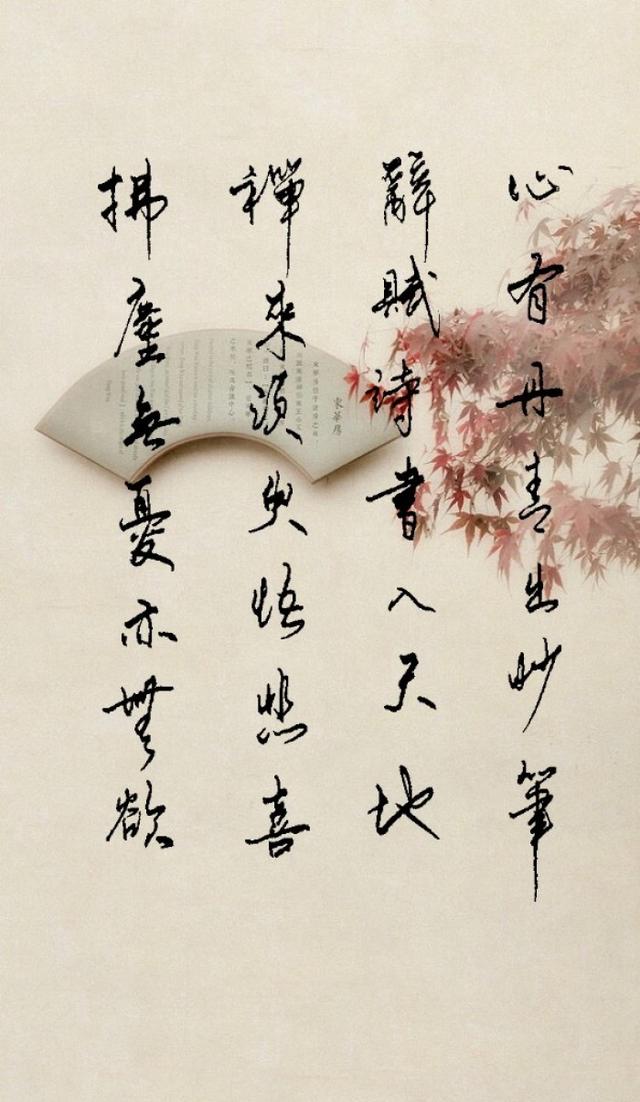 心有丹青出妙筆
辭賦詩書入天地
禪來須臾悟悲喜
拂塵無憂亦無欲
東華房